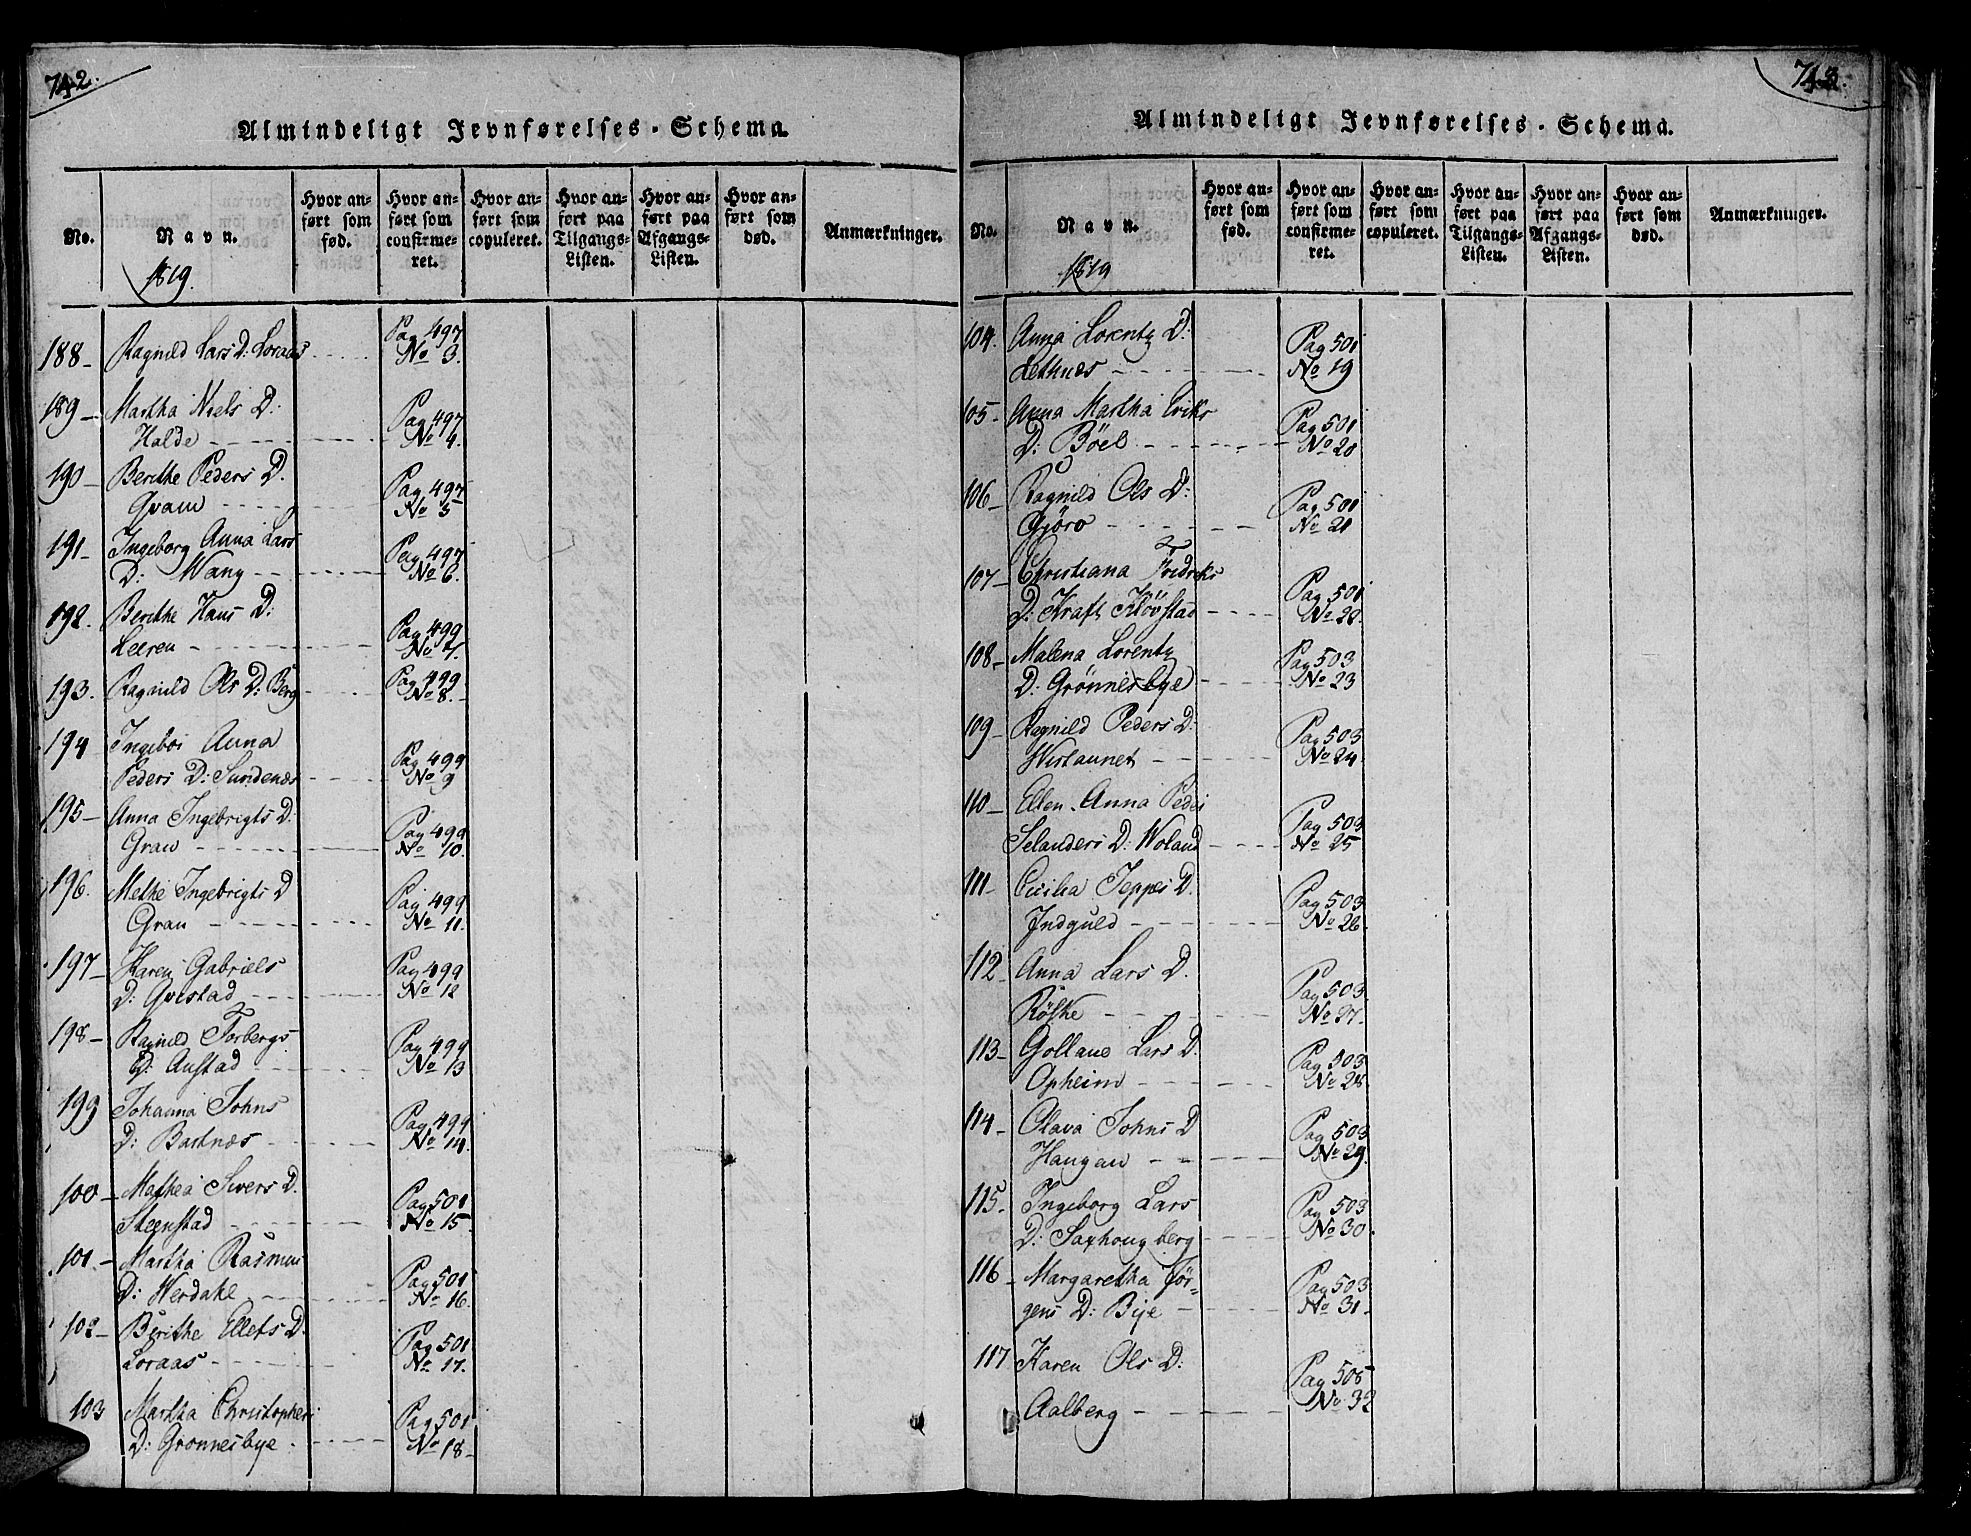 742.
Almindeligt Jevnførelses-Schema.
No.
Navn.
Hvor anført som fød.
Hvor anført som confirmeret.
Hvor anført som copuleret.
Hvor anført paa Tilgangs-Listen.
Hvor anført paa Afgangs-Listen.
Hvor anført som død.
Anmærkninger.
1819.
188 - Ragnild Lars D: Loraas Pag 497
No 3.
189 - Martha Niels D:
Halde Pag 497
No 4.
190 - Berithe Peders D.
Qvam Pag 497
No 5
191 - Ingeborg Anna Lars
D: Wang Pag 497
No 6.
192. Berithe Hans D:
Leeren Pag 499
No 7.
193. Ragnild Ols D: Berg Pag 499
No 8.
194 Ingebor Anna
Peders D: Sundenæs Pag 499
No 9
195 - Anna Ingebrigts D:
Gran Pag 499
No 10.
196. Methe Ingebrigts D
Gran Pag 499
No 11.
197 - Karen Gabriels
D: Qvistad Pag 499
No 12
198 - Ragnild Torbergs
D: Austad Pag 499
No 13
199 Johanna Johns
D: Bartnæs Pag 499
No 14.
100 - Mathea Sivers D.
Steenstad Pag 501
No 15
101. - Martha Rasmus
D: Werdahl Pag 501
No 16.
102 - Berithe Ellefs D.
Loraas Pag 501
No 17.
103 Martha Christophers
D: Grønnesbye Pag 501
No 18
743.
Almindeligt Jevnførelses-Schema.
No.
Navn.
Hvor anført som fød.
Hvor anført som confirmeret.
Hvor anført som copuleret.
Hvor anført paa Tilgangs-Listen.
Hvor anført paa Afgangs-Listen.
Hvor anført som død.
Anmærkninger.
1819
104. Anna Lorentz D:
Lethnæs Pag 501
No 19
105 - Anna Martha Eriks
D: Böel Pag 501
No 20
106 - Ragnild Ols D:
Gjörv Pag 501
No 21
107 - Christiana Fredriks
D: Kraft Klövstad Pag 501
No 22.
108 - Malena Lorentz
D: Grönnesbye Pag 503
No 23
109 - Ragnild Peders D:
Wistaunet Pag 503
No 24
110 - Ellen Anna Peder
Selanders D: Woland Pag 503
No 25
111 - Cicilia Jeppes D.
Indguld Pag 503
No 26.
112 - Anna Lars D.
Röske Pag 503
No 27.
113 - Lars D.
Opheim Pag 503
No 28
114 - Olava Johns D
Haugan Pag 503
No 29.
115. Ingeborg Lars
D: Saxhoug berg Pag 503
No 30.
116 - Margaretha Jör-
gens D: Bye Pag 503
No 31.
117 Karen Ols D:
Aalberg Pag 505
No 32